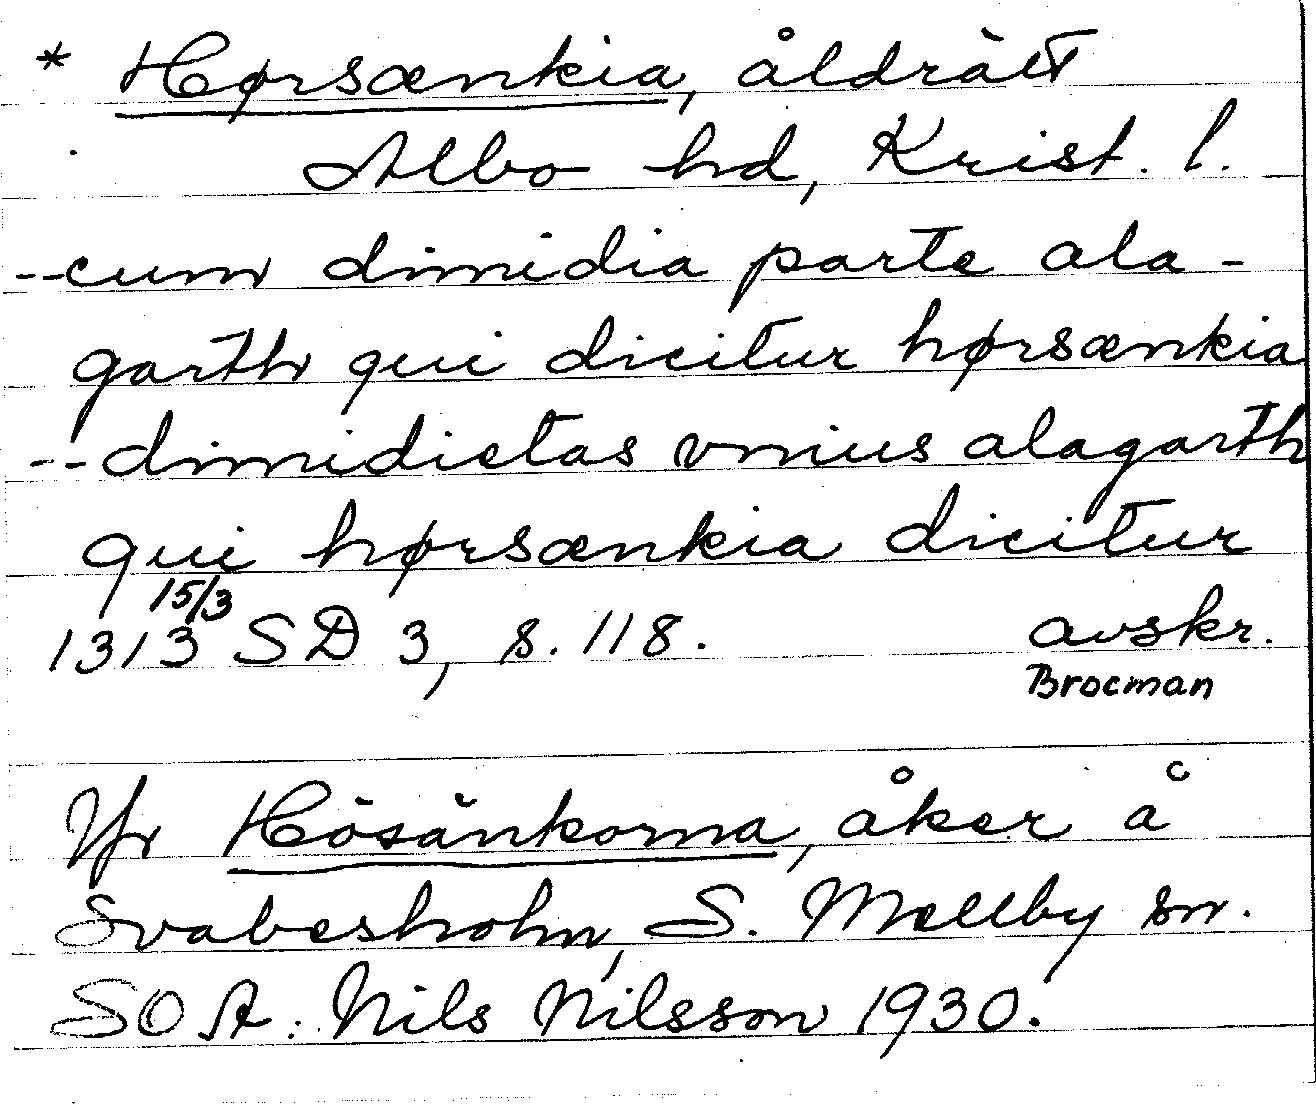 * Hørsænkia, åldrätt
Albo hd, Krist. l.
--cum dimidia parte ala-
garth qui dicitur hørsænkia
--dimidietas vnius alagarth
qui hørsænkia dicitur
1313 15/3 SD 3, s. 118. avskr.
Brocman
Jfr Hösänkorna, åker å
Svabesholm, S. Mellby sn.
SOA. Nils Nilsson 1930.